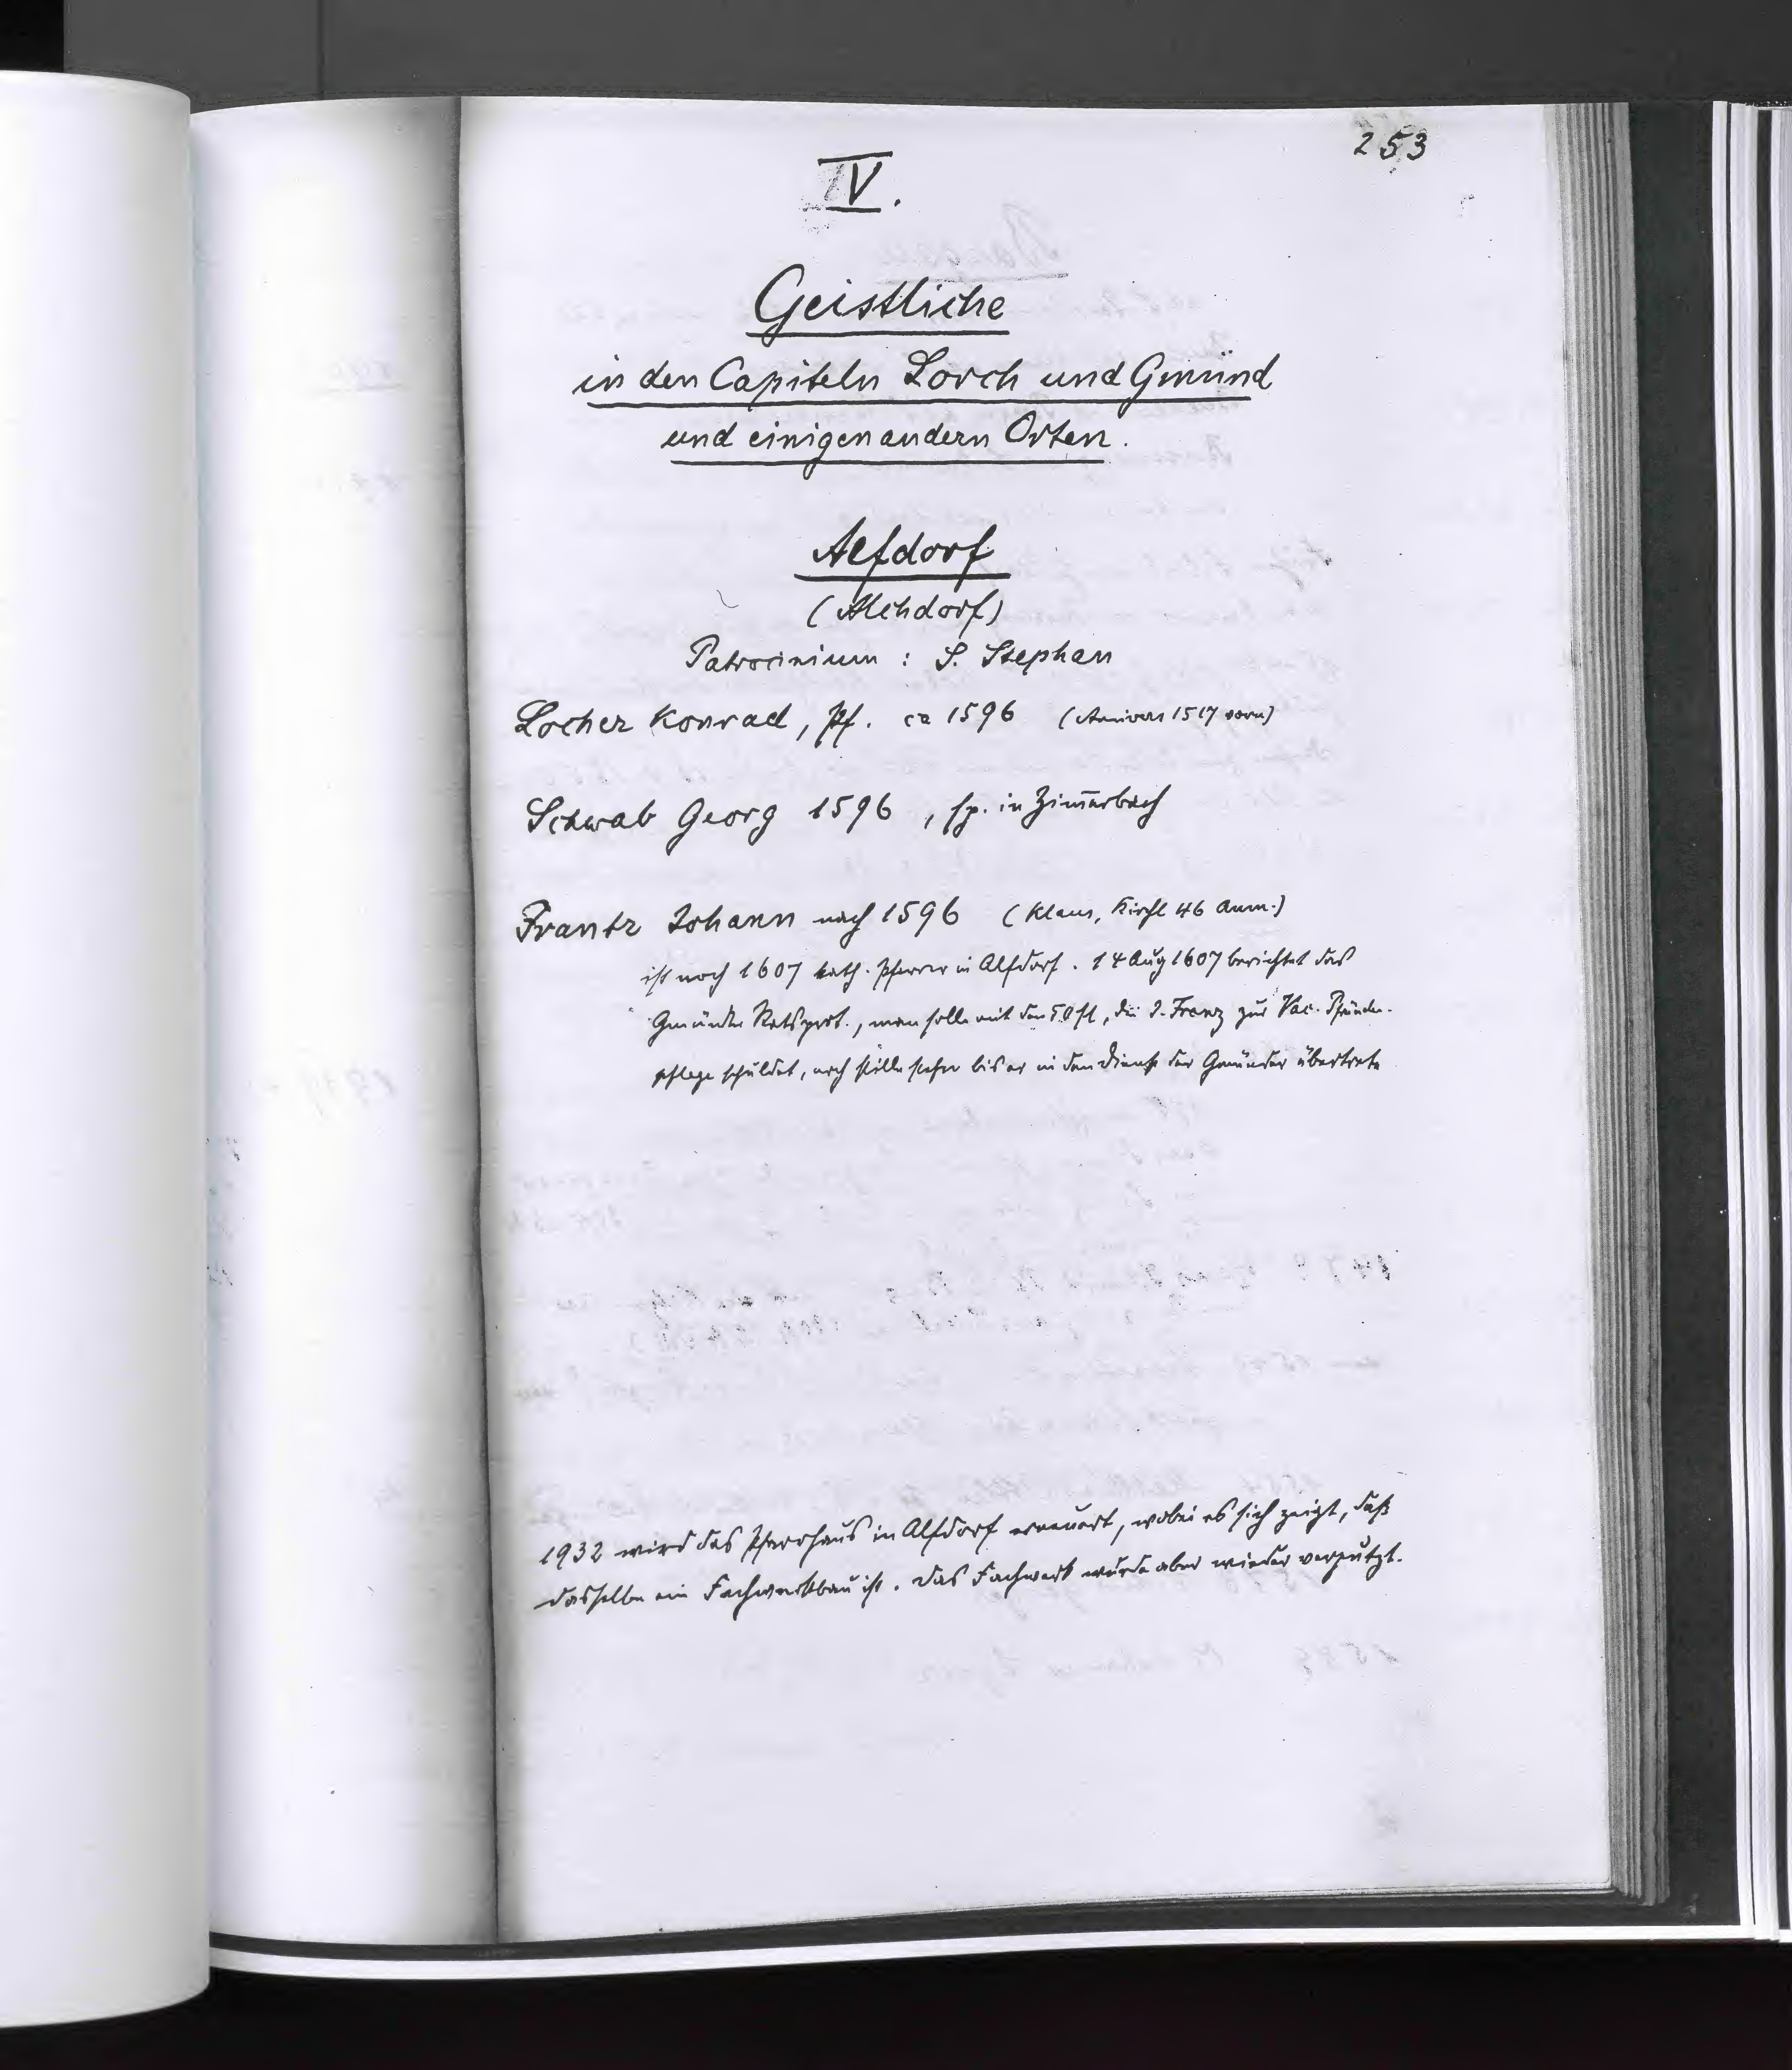 253
IV.
Geistliche
in den Capiteln Lorch und Gmünd
und einigen andern Orten.
Alfdorf
(Alchdorf)
Patrocinium : S. Stephan
Locher Konrad, Pf. ca 1596 (Annivers 1517 vorn)
Schwab Georg 1596, sp. in Zim̄erbach
Frantz Johann nach 1596 (Klaus, Kirchl 46 Anm.)
ist noch 1607 kath. Pfarrer in Alfdorf. 14 Aug 1607 berichtet das
Gmünder Ratsprot., man solle mit den 50 fl, die J. Franz zur Vac. Pfründe-
pflege schuldet, noch stille stehen bis er in den Dienst der Gmünder übertrete
1932 wird das Pfarrhaus in Alfdorf erneuert, wobei es sich zeigt, daß
dasselbe ein Fachwerkbau ist. Das Fachwerk wurde aber wieder verputzt.